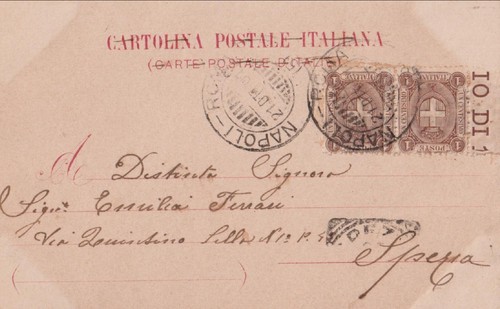 CARTOLINA POSTALE ITALIANA
(CARTE POSTALE D'ITALIE)
NAPOLI-ROMA
21 DIC
NAPOLI
1 1 1 1
IO. DI 1
A
Distinta Signora
Sig.ra Emilia Ferrari
Via Quintino Sella N. 1 P.
Spezia